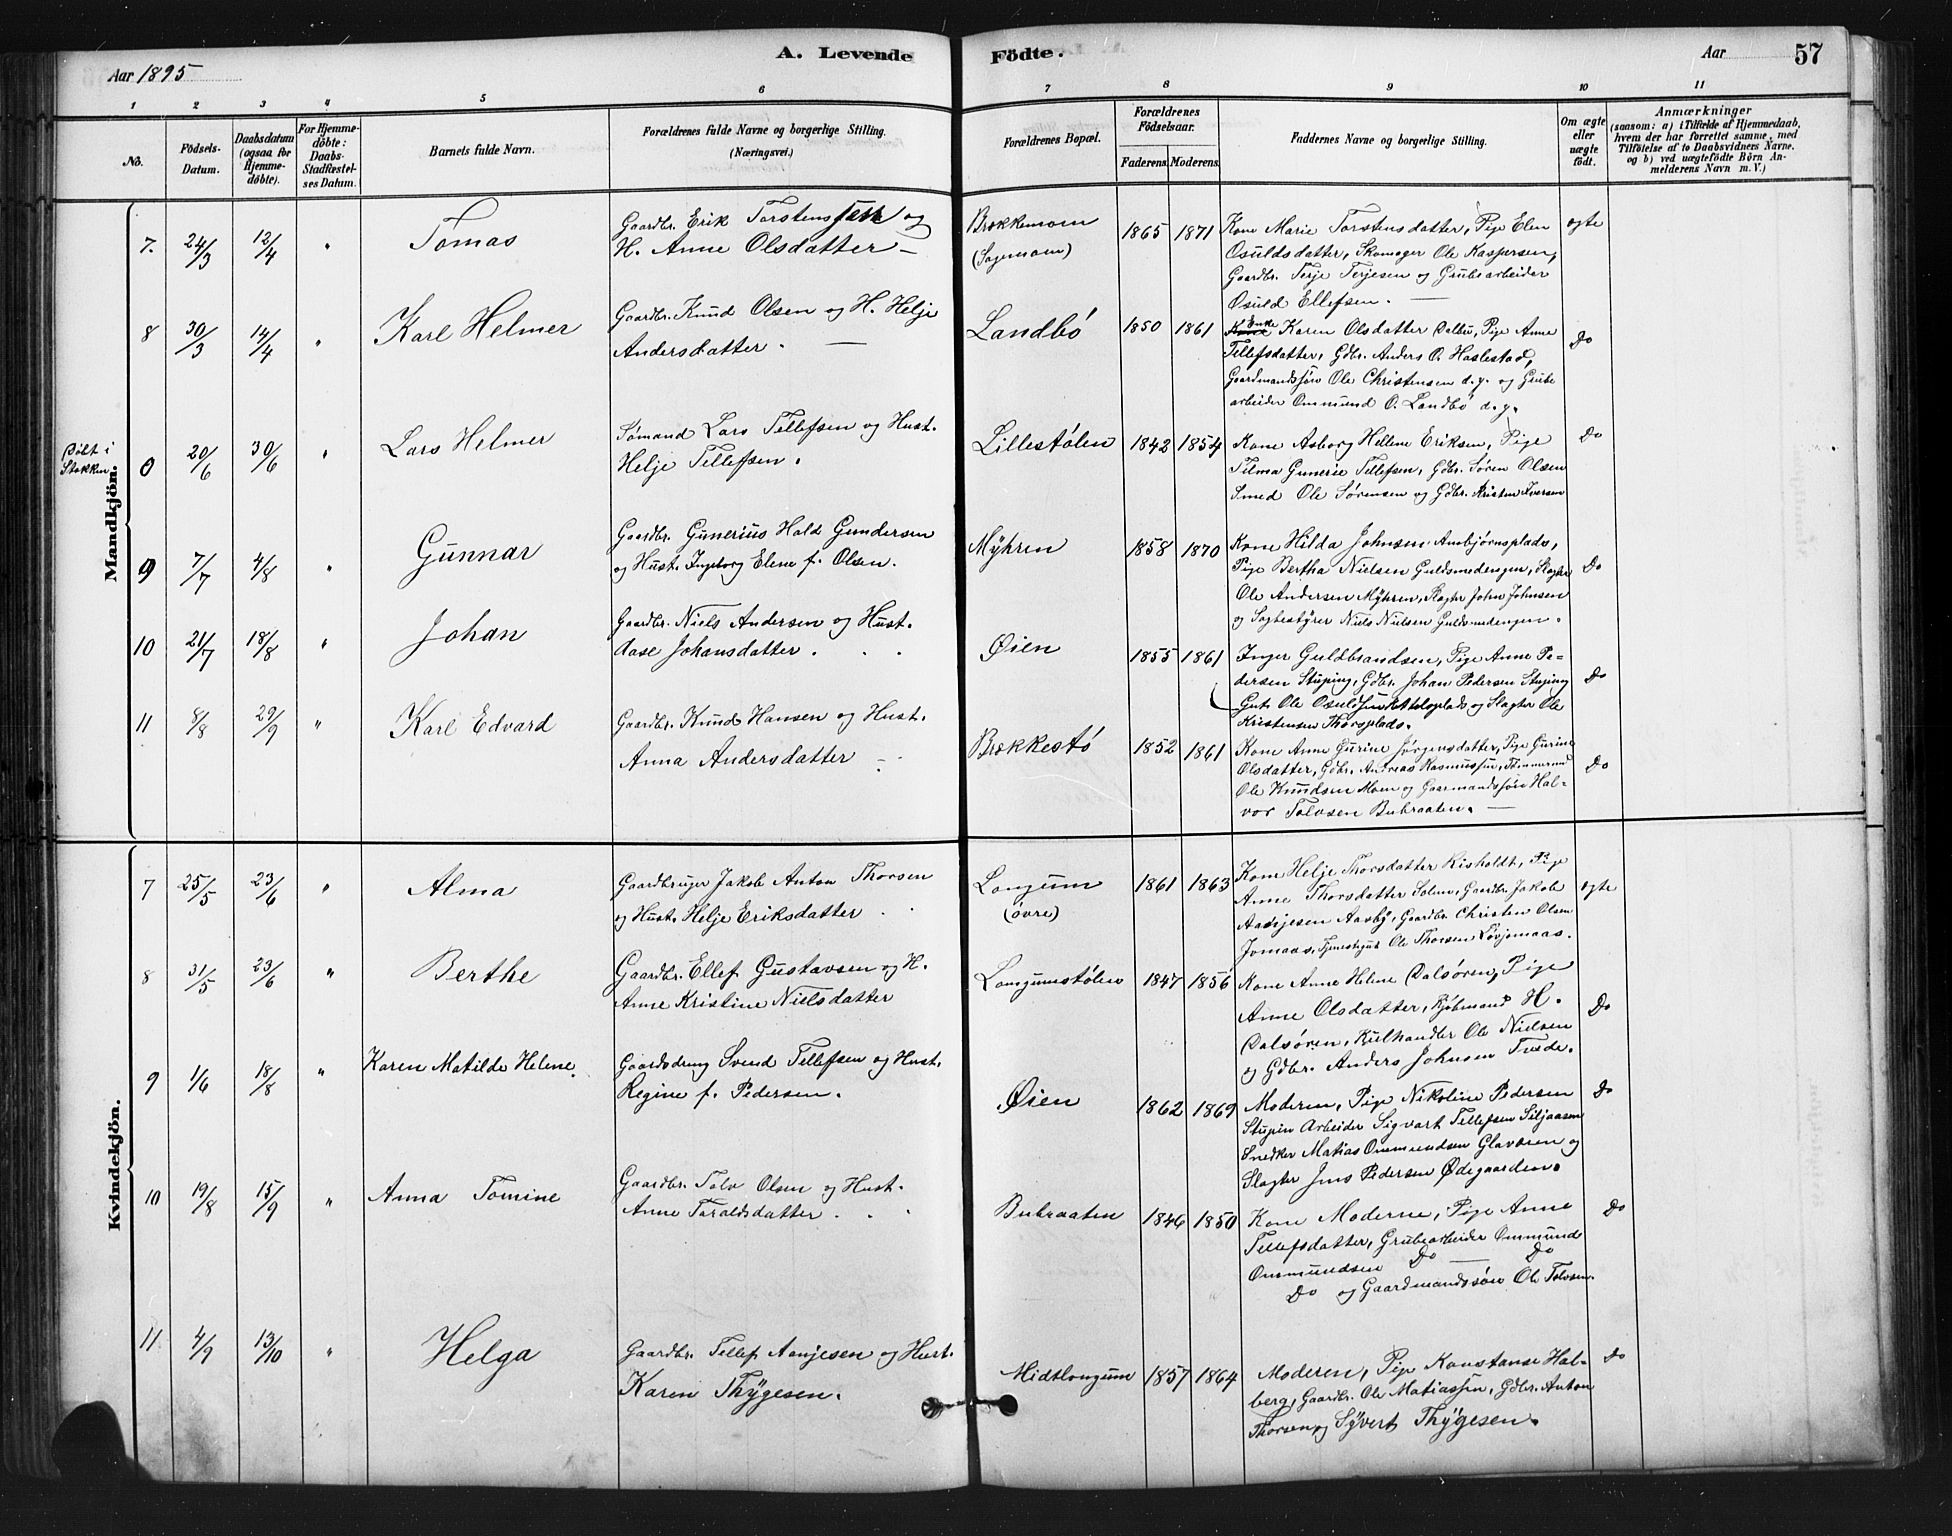 Aar 1895
A. Levende
Födte.
Aar
57
1 2 3 4 5 6 7 8 9 10 11
No.
Födsels-
Datum.
Daabsdatum
(ogsaa for
Hjemme-
döbte).
For Hjemme-
döbte:
Daabs-
Stadfæstel-
ses Datum.
Barnets fulde Navn.
Forældrenes fulde Navne og borgerlige Stilling.
(Næringsvei.)
Forældrenes Bopæl.
Forældrenes
Födselsaar.
Faderens.
Moderens.
Faddernes Navne og borgerlige Stilling.
Om ægte
eller
uægte
födt.
Anmærkninger
(saasom: a) i Tilfælde af Hjemmedaab,
hvem der har forrettet samme, med
Tilföielse af to Daabsvidners Navne,
og b) ved uægtefödte Börn An-
melderens Navn m. V.)
Mandkjön.
7. 24/3 12/4 " Tomas
Gaardbr. Erik Torstenssen og
H. Anne Olsdatter —
Brækkemoen
(Sagemoen)
1865 1871
Kone Marie Torstensdatter, Pige Elen
Osuldsdatter, Skomager Ole Kaspersen,
Gaardbr. Terje Terjesen og Grubearbeider
Osuld Ellefsen. —
ægte
8 30/3 14/4 " Karl Helmer
Gaardbr. Knud Olsen og H. Helje
Andersdatter. —
Landbö
1850 1861
Enke Karen Olsdatter Dalbu, Pige Anne
Tellefsdatter, Gdbr. Anders O. Haslestad,
Gaardmandssön Ole Christensen d.y. og Grube
arbeider Ommund O. Landbö d.y.
Do
Döbt i
Stokken
0 20/6 30/6 " Lars Helmer
Sømand Lars Tellefsen og Hust.
Helje Tellefsen.
Lillestölen
1842 1854
Kone Asborg Hellene Eriksen, Pige
Tilma Gunerie Tellefsen, Gdbr. Sören Olsen
Smed Ole Sörensen og Gdbr. Kristen Iversen
Do
9 7/7 4/8 " Gunnar
Gaardbr. Gunerius Hald Gundersen
og Hust. Ingeborg Elene f. Olsen.
Myhren
1858 1870
Kone Hilda Johnsen Ambjörnsplads,
Pige Bertha Nielsen Guldsmedengen, Slagter
Ole Andersen Myhren, Slagter John Johnsen
og Sagbestyrer Niels Nielsen Guldsmedengen.
Do
10 21/7 18/8 " Johan
Gaardbr. Niels Andersen og Hust.
Aase Johansdatter.
Øien
1855 1861
Inger Guldbrandsen, Pige Anne Pe-
dersen Stuping, Gdbr. Johan Pedersen Stuping
Gut. Ole Osuldsen Kittelsplads og Slagter Ole
Kristensen Thorsplads.
Do
11 8/8 29/9 " Karl Edvard
Gaardbr. Knud Hansen og Hust.
Anna Andersdatter
Brækkestö
1852 1861
Kone Anne Gurine Jörgensdatter, Pige Gurine
Olsdatter, Gdbr. Andreas Rasmussen, Tömmermd
Ole Knudsen Moen og Gaarmandssön Hal-
vor Tolvsen Bubraaten. —
Do
Kvindekjön.
7 25/5 23/6 " Alma
Gaardbruger Jakob Anton Thorsen
og Hust. Helje Eriksdatter
Longum
(övre)
1861 1863
Kone Helje Thorsdatter Risholdt, Pige
Anne Thorsdatter Solem, Gaardbr. Jakob
Aanjesen Aasby, Gaardbr. Christen Olsen
Jomaas, Tjenestegut Ole Thorsen Lövjomaas.
ægte
8 31/5 23/6 " Berthe
Gaardbr. Ellef Gustavsen og H.
Anne Kristine Nielsdatter
Longumstölen
1847 1856
Kone Anne Helene Dalsören, Pige
Anne Olsdatter, Kjöbmand H.
Dalsören, Kulhandler Ole Nielsen
og Gdbr. Anders Johnsen Tvede.
Do
9 1/6 18/8 " Karen Matilde Helene.
Gaardsdreng Svend Tellefsen og Hust.
Regine f. Pedersen.
Øien
1862 1869
Moderen, Pige Nikoline Pedersen
Stupin Arbeider Sigvart Tellefsen Siljaasen
Snedker Matias Ommundsen Glaveren og
Slagter Jens Pedersen Ødegaarden.
Do
10 19/8 15/9 " Anna Tomine
Gaardbr. Tolv Olsen og Hust.
Anne Taraldsdatter.
Bubraaten
1846 1850
Kone Moderne, Pige Anne
Tellefsdatter, Grubearbeider Ommund
Ommundsen Do — Do
Do og Gaardmandssön Ole Tolvsen.
Do
11 4/9 13/10 " Helga
Gaardbr. Tellef Aanjesen og Hust.
Karen Thygesen.
Midtlongum
1857 1864
Moderen, Pige Konstanse Hal-
berg, Gaardbr. Ole Matiassen, Gdbr. Anton
Thorsen og Syvert Thygesen.
Do